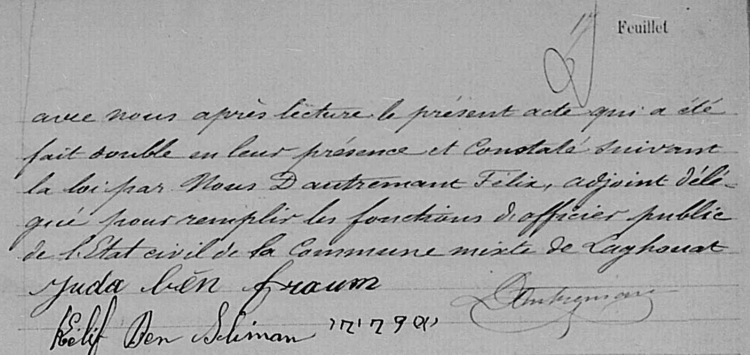 17 Feuillet
avec nous après lecture le présent acte qui a été
fait double en leur présence et Constaté suivant
la loi par Nous Dautremant Félix, adjoint délé-
gué pour remplir les fonctions d'officier public
de l'Etat civil de la Commune mixte de Laghouat
Juda bën fraum
Kélif Ben Sliman